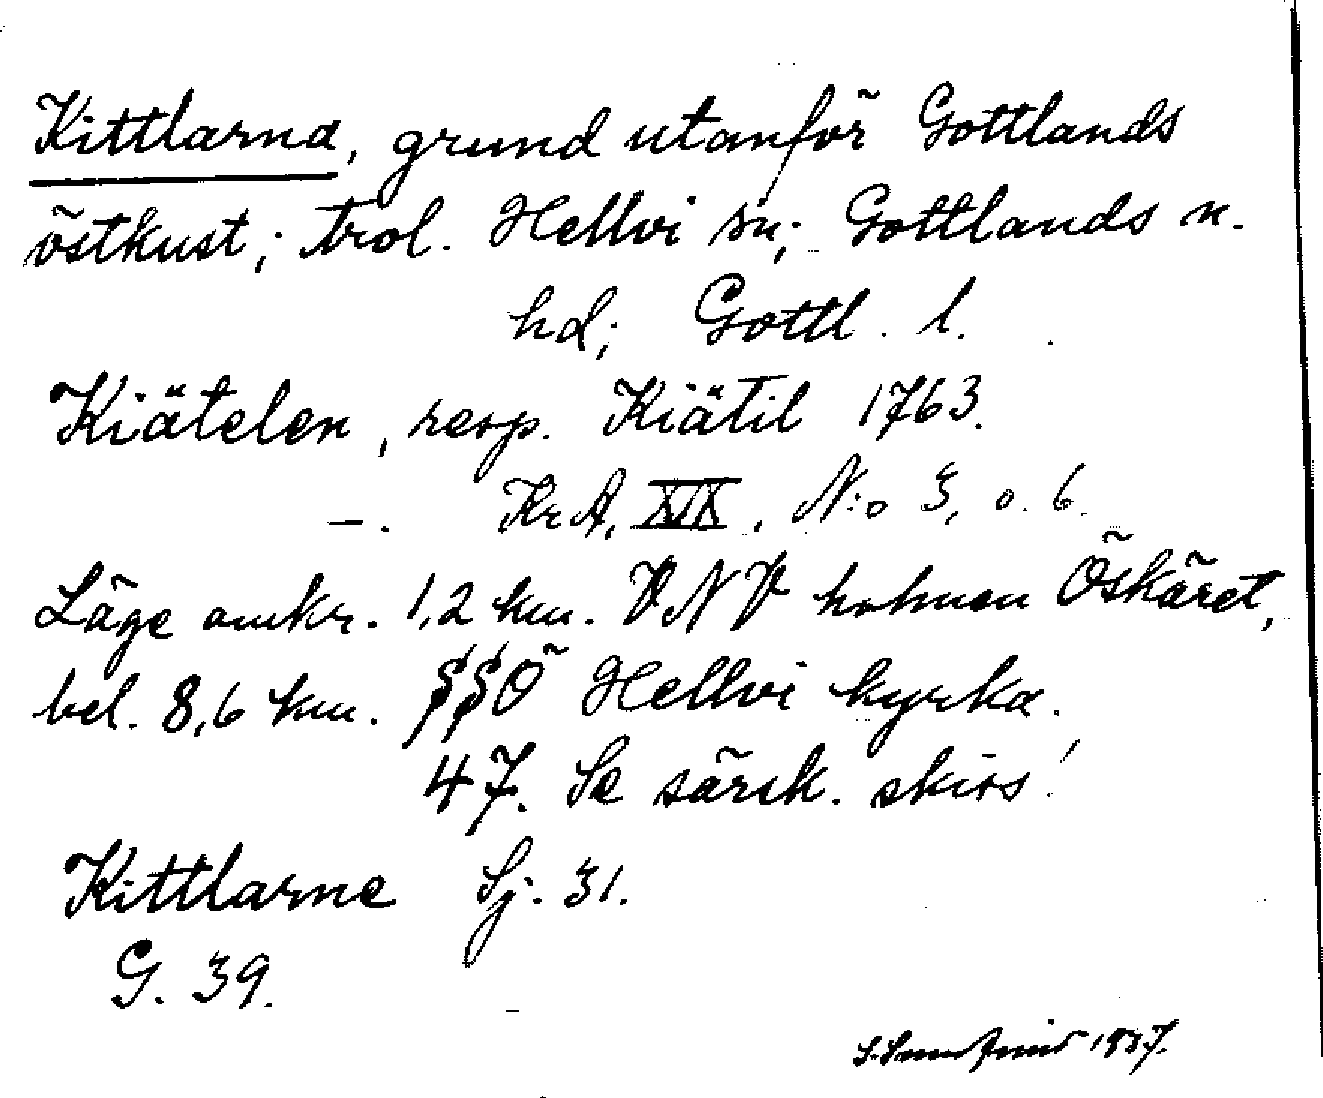 Kittlarna, grund utanför Gottlands
östkust; trol. Hellvi sn; Gottlands n.
hd; Gottl. l.
Kiätelen, resp. Kiätil 1763.
—. KrA, XIX, N:o 3, o. 6.
Läge omkr. 1,2 km. VNV holmen Öskäret,
bel. 8,6 km. SSÖ Hellvi kyrka.
47. Se särsk. skiss!
Kittlarne Sj. 31.
G. 39.
1937.